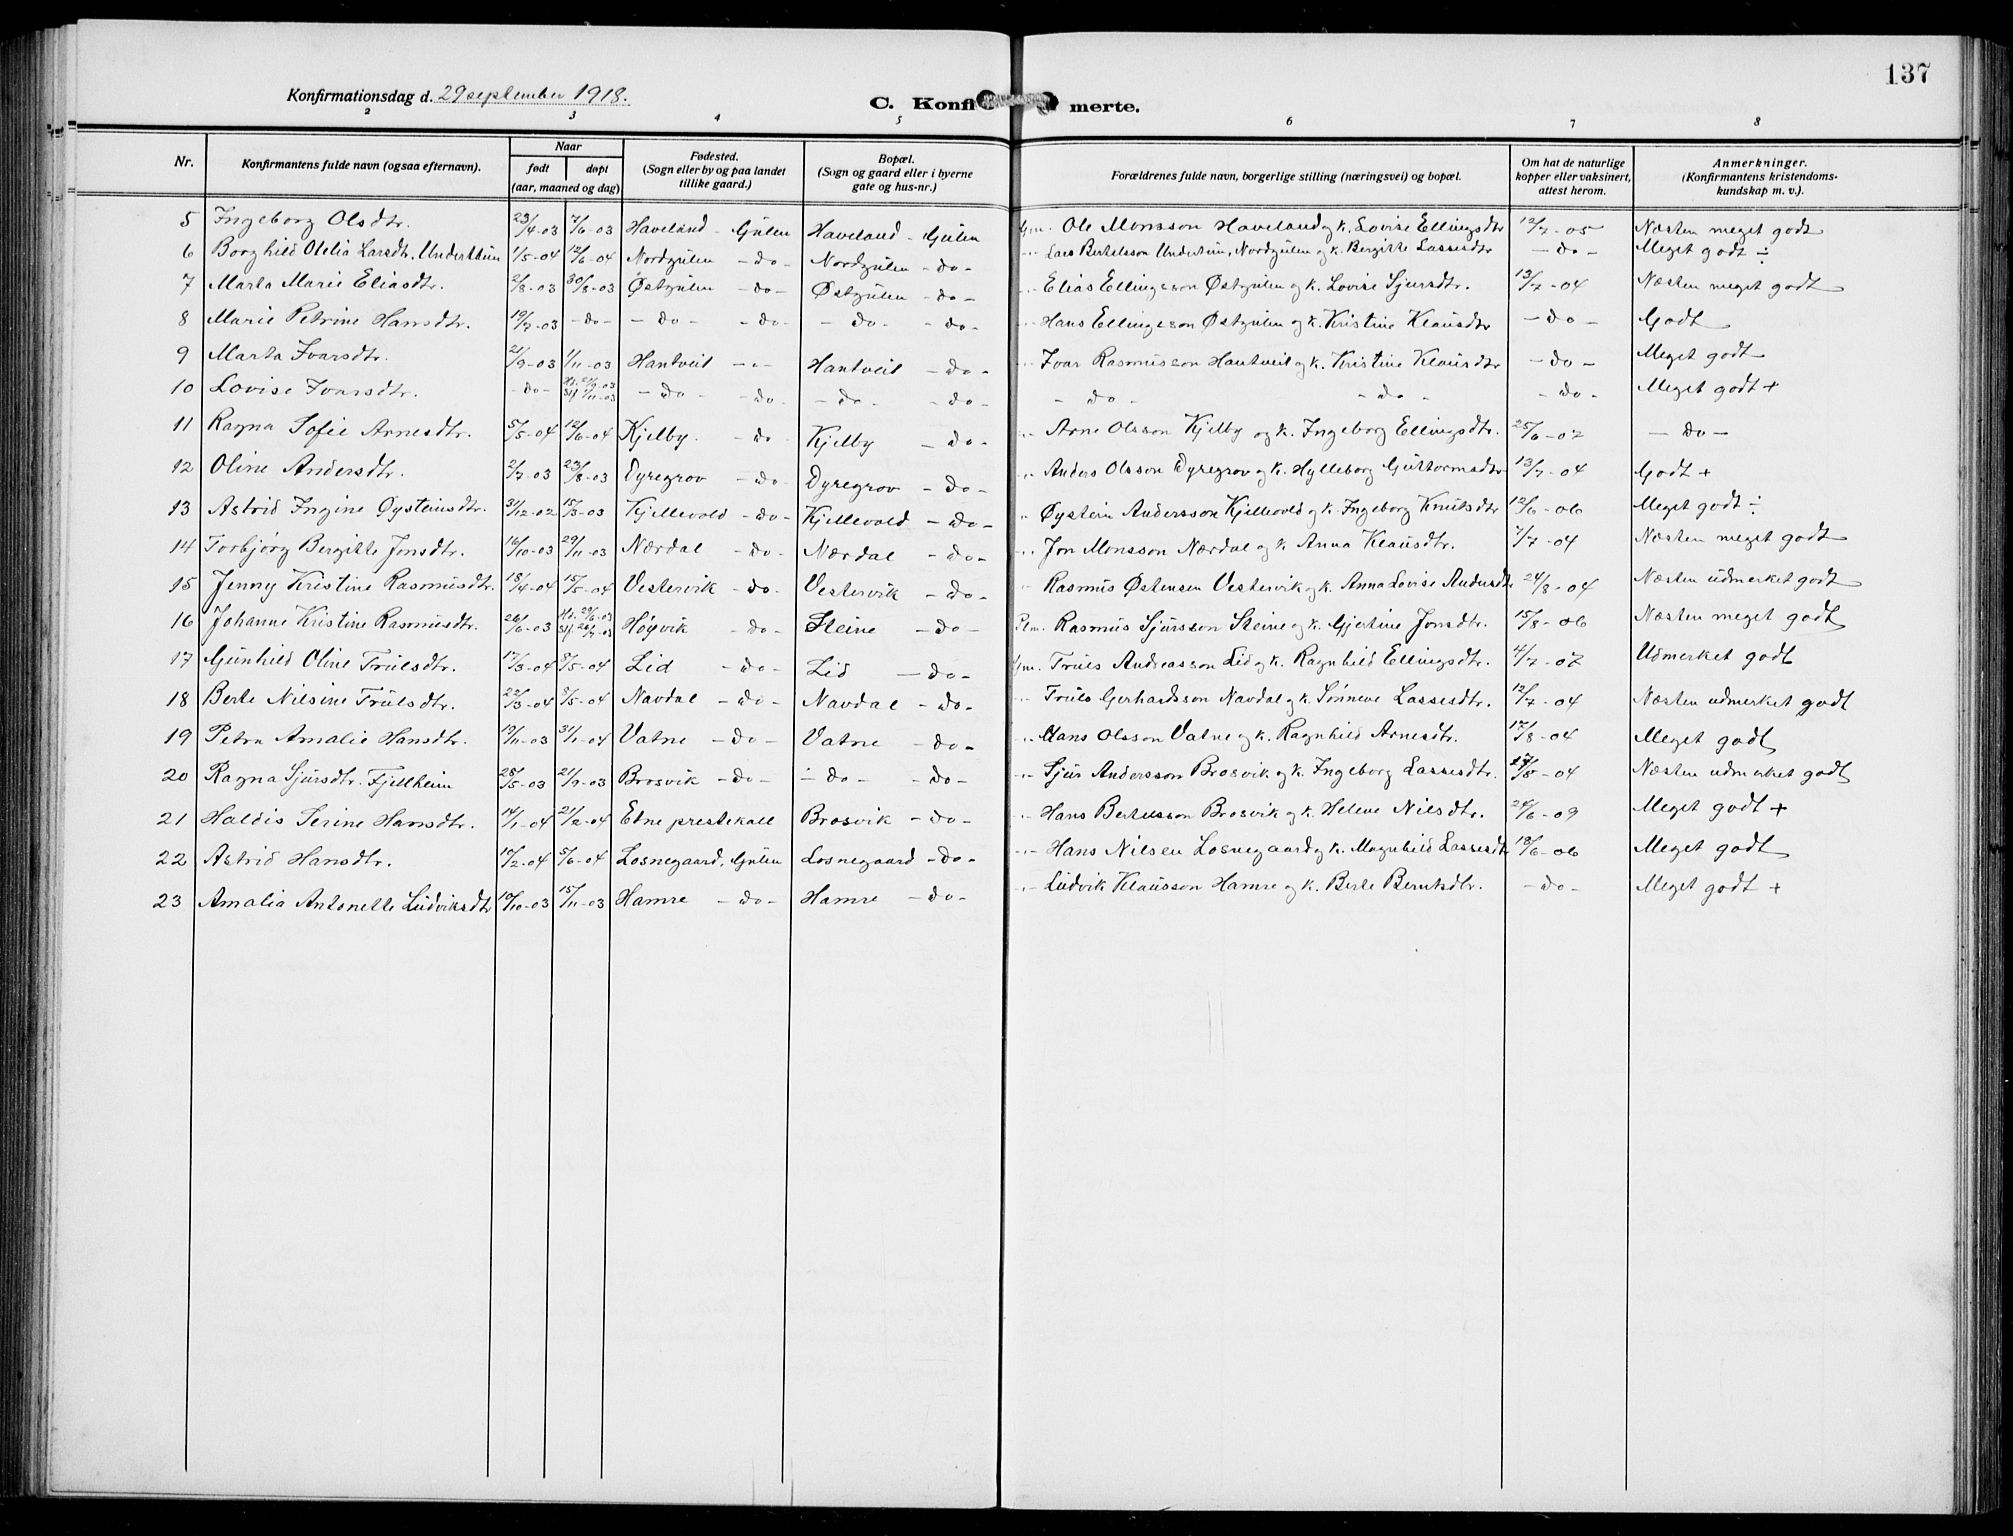 137
Konfirmationsdag d. 29 september 1918.
C. Konfirmerte.
2 3 4 5 6 7 8
Nr. Konfirmantens fulde navn (ogsaa efternavn). Naar født døpt (aar, maaned og dag) Fødested. (Sogn eller by og paa landet tillike gaard.) Bopæl. (Sogn og gaard eller i byerne gate og hus-nr.) Forældrenes fulde navn, borgerlige stilling (næringsvei) og bopæl. Om hat de naturlige kopper eller vaksinert, attest herom. Anmerkninger. (Konfirmantens kristendomskundskap m. v.).
5 Ingeborg Olsdtr. 23/4-03 7/6-03 Haveland - Gulen Haveland - Gulen Gm. Ole Monsson Haveland og k. Lovise Ellingsdtr 12/7-05 Næsten meget godt
6 Borghild Otilia Larsdtr. Underthun 1/5-04 12/6-04 Nordgulen -do- Nordgulen -do- -"- Lars Bertelsson Undertun, Nordgulen og k. Bergitte Lassesdtr -do- Meget godt ÷
7 Marta Marie Eliasdtr. 2/8-03 30/8-03 Østgulen -do- Østgulen -do- -"- Elias Ellingsson Østgulen og k. Lovise Sjursdtr. 13/7-04 Næsten meget godt
8 Marie Petrine Hansdtr. 19/7-03 -do- -do- -do- -do- -do- -"- Hans Ellingsson Østgulen og k. Kristine Klausdtr -do- Godt
9 Marta Ivarsdtr. 21/9-03 1/11-03 Hantveit -"- Hantveit -do- -"- Ivar Rasmusson Hantveit og k. Kristine Klausdtr -do- Meget godt
10 Lovise Ivarsdtr. -do- Hd. 21/9-03 Stf. 1/11-03 -do- -do- -do- -do- -do- -do- -do- Meget godt +
11 Ragna Sofie Arnesdtr. 5/5-04 12/6-04 Kjelby. -do- Kjelby -do- -"- Arne Olsson Kjelby og k. Ingeborg Ellingsdtr. 25/6-07 -do-
12 Oline Andersdtr. 2/7-03 23/8-03 Dyregrov -do- Dyregrov -do- -"- Anders Olsson Dyregrov og k. Hylleborg Guttormsdtr 13/7-04 Godt +
13 Astrid Ingine Øysteinsdtr. 31/12-02 15/3-03 Kjellevold -do- Kjellevold -do- -"- Øystein Andersson Kjellevold og k. Ingeborg Knutsdtr 12/6-06 Meget godt ÷
14 Torbjørg Bergitte Jonsdtr. 16/10-03 29/11-03 Nærdal -do- Nærdal -do- -"- Jon Monsson Nærdal og k. Anna Klausdtr. 7/7-04 Næsten meget godt
15 Jenny Kristine Rasmusdtr. 18/4-04 15/5-04 Vestervik -do- Vestervik -do- -"- Rasmus Østensen Vestervik og k. Anna Lovise Andersdtr 24/8-04 Næsten udmerket godt
16 Johanne Kristine Rasmusdtr. 26/6-03 Høyvik -do- Steine -do- Plm. Rasmus Sjursson Steine og k. Gjertine Jonsdtr. 15/8-06 Næsten meget godt
17 Gunhild Oline Trulsdtr. 17/3-04 8/5-04 Lid -do- Lid -do- Gm. Truls Andreasson Lid og k. Ragnhild Ellingsdtr. 4/7-07 Udmerket godt
18 Berte Nilsine Trulsdtr. 22/3-04 8/5-04 Navdal -do- Navdal -do- -"- Truls Gerhardsson Navdal og k. Sønneve Lassesdtr. 12/7-04 Næsten udmerket godt
19 Petra Amalie Hansdtr. 19/11-03 31/1-04 Vatne -do- Vatne -do- -"- Hans Olsson Vatne og k. Ragnhild Arnesdtr. 17/8-04 Meget godt
20 Ragna Sjursdtr. Fjellheim 28/5-03 21/9-03 Brosvik -do- -do- -do- -"- Sjur Andersson Brosvik og k. Ingeborg Lassesdtr. Næsten udmerket godt
21 Haldis Serine Hansdtr. 14/1-04 21/2-04 Etne prestekall Brosvik -do- -"- Hans Berteusson Brosvik og k. Helene Nilsdtr. 24/6-09 Meget godt +
22 Astrid Hansdtr. 17/2-04 5/6-04 Losnegaard, Gulen Losnegaard -do- -"- Hans Nilsen Losnegaard og k. Magnhild Lassesdtr 18/6-06 Meget godt
23 Amalia Antonette Ludviksdtr 19/10-03 15/11-03 Hamre -do- Hamre -do- -"- Ludvik Klausson Hamre og k. Berte Berntsdtr. -do- Meget godt +